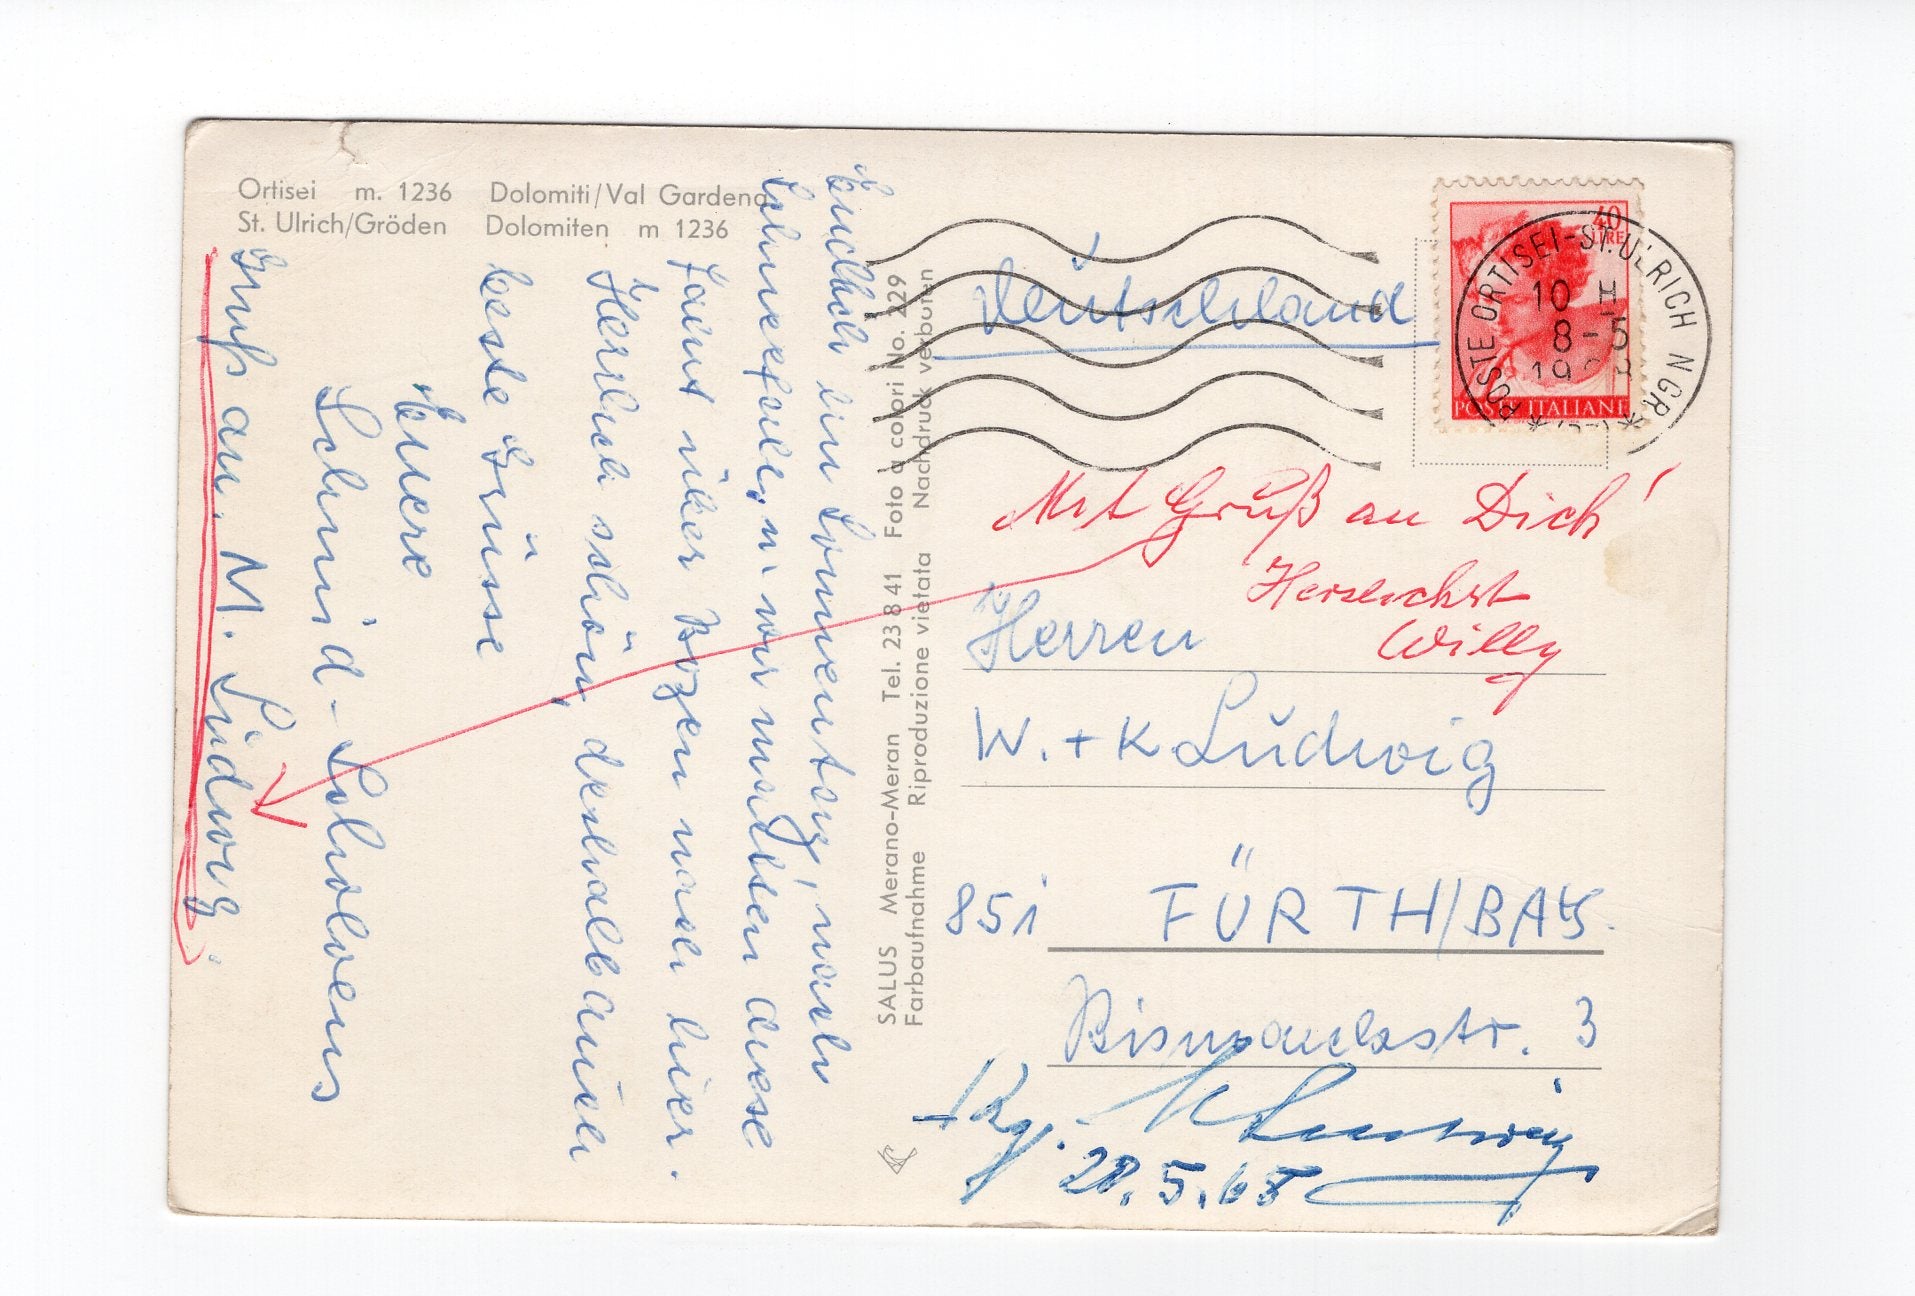 Ortisei m. 1236 Dolomiti/Val Gardena
St. Ulrich/Gröden Dolomiten m 1236
Endlich ein Sonnentag, nach
Schneefall, u. wir machten diese
Fahrt über Bozen nach hier.
Herrlich schön, deshalb auch
beste Grüsse
Euere
Schmid-
Gruß an M. Ludwig
SALUS Merano-Meran Tel. 23 8 41 Foto a colori No. 229
Farbaufnahme Riproduzione vietata Nachdruck verboten
Deutschland
40
LIRE
POSTE ITALIANE
POSTE ORTISEI-ST. ULRICH N GR
10 H
8-5
Mit Gruß an Dich!
Herzlichst
Willy
Herren
W. + K Ludwig
851 FÜRTH/BAY.
Bismarckstr. 3
K Ludwig